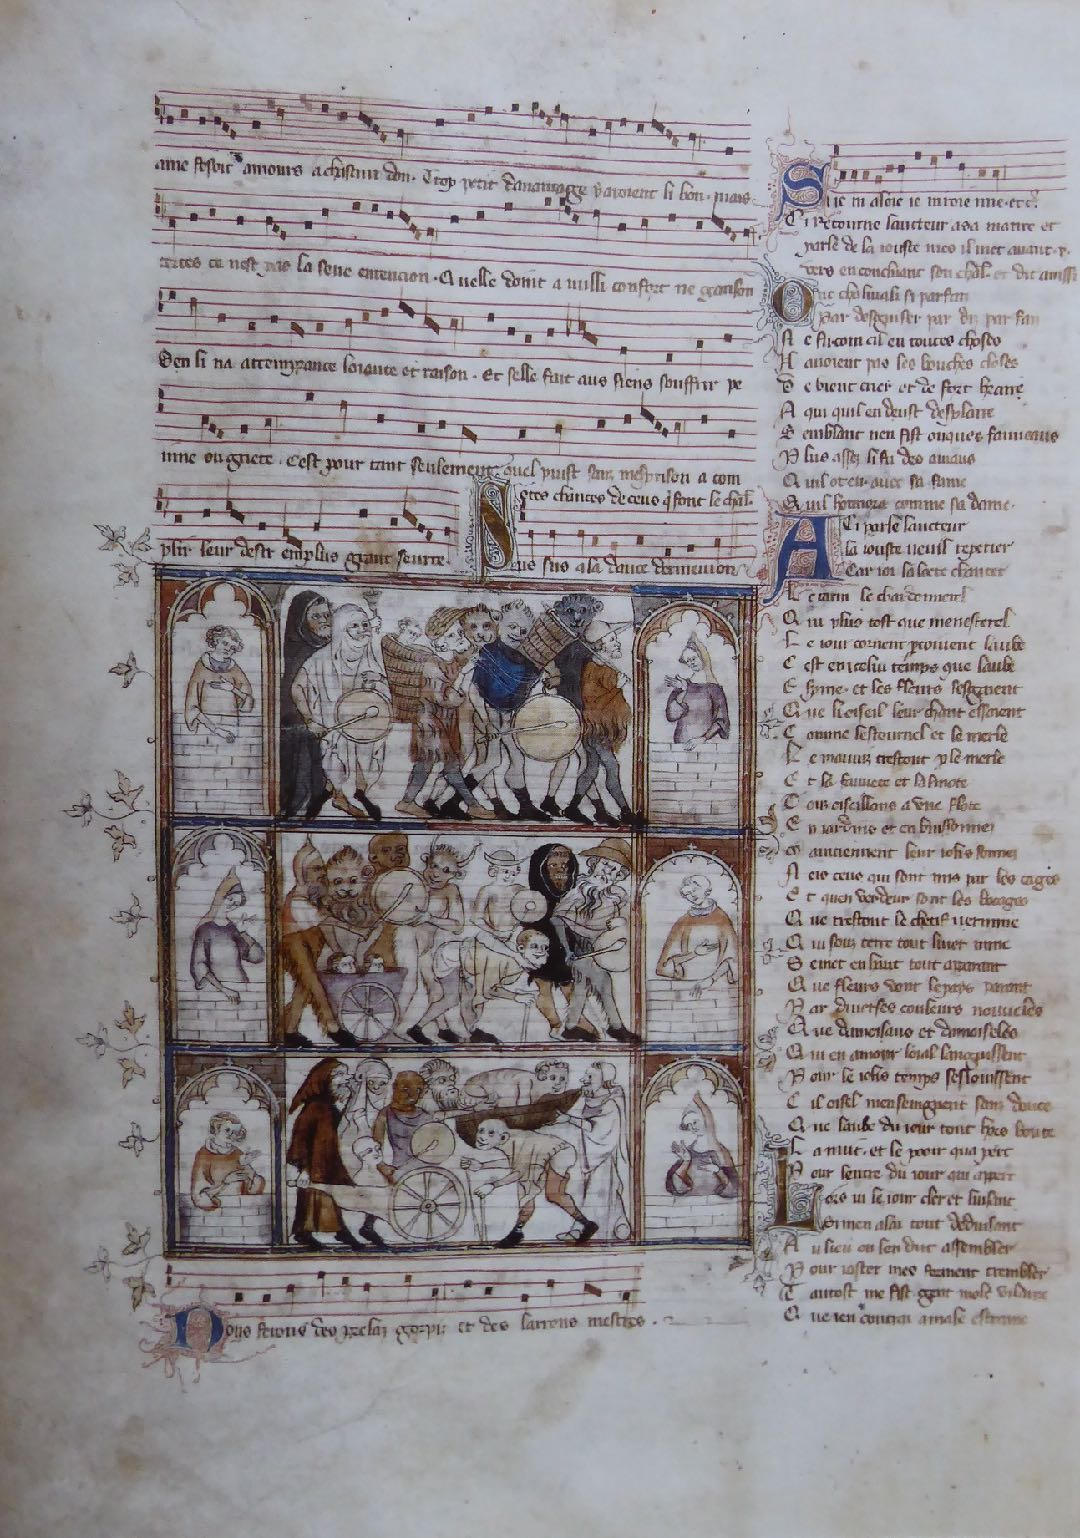 ame feroit amours a chascun don. Trop petit dauantage y aroient li bon. mais
certes ce nest pas la seue entencion. Quelle doint a nulli confort ne garison
Sen li na attemprance loiaute et raison. Et selle fait aus siens souffrir pe
inne ou griete. Cest pour tant seulement quel puist sanz mesprison a com
plir leur desir en plus grant seurte.
Sotes chancons de ceus q̃ font le chal.
sus sus a la dance dermenion
Nous ferons des prelaz gorpiz et des larrons mestres.
Se je m aloie je miroie mie. etc.
Ci retourne laucteur a sa matire et
parle de la iouste mes il met auant. v.
vers en concluant son chal. et dit ainssi
Onc chalivali si parfaiz
Par desguiser par diz par faiz
Ne fu com cil en toutes choses
Il auoient pas les bouches closes
De bien crier et de fort braire
A qui quil en deust desplaire
Semblant nen fist onques fauueaus
Plus assez li fu deo auiaus
Quil ot en auec sa fame
Quil honnora comme sa dame.
Ci parle laucteur
A la iouste ueuil reperier
Car ioi la lacte chanter
Le tarin le chardonnerel
Qui plus tost que menesterel
Le iour cornent proment laube
Cest en icelui temps que laube
Espine. et les fleurs sespanent
Que li oisel leur chant essaient
Comme lestournel et le merle
Le mauuiz trestout p le merle
Et la fauuete et la linote
Touz oiseillons a une flote
En iardins et en buissonnez
Mainnent leur iolis sonnez
Neis ceus qui sont mis par les cages
Et quen verdeur sont les boscages
Que trestout le chetif uermine
Qui souz terre tout liuer mine
Semet en bruit tout aparant
Que fleurs vont le pays parant
Par diuerses couleurs nouueles
Que damoisiaus et damoiseles
Qui en amour loial languissent
Pour le iolis temps sesioissent
Cil oisel menseingnent sanz doute
Que laube du iour tout hors boute
La nuit. et le pooir qua pert
Pour lentre du iour qui apert
Lors ui le iour cler et luisant
Si men alai tout deduisant
Au lieu ou len dut assembler
Pour ioster mes forment trembler
Tantost me fist gent mole vilaine
Que ien contrai a male estraine